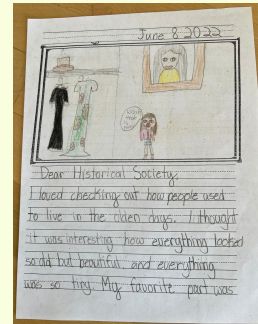 June 8 2022
Dear Historical Society,
I loved checking out how people used
to live in the olden days. I thought
it was interesting how everything looked
so old but beautiful, and everything
was so tiny. My favorite part was